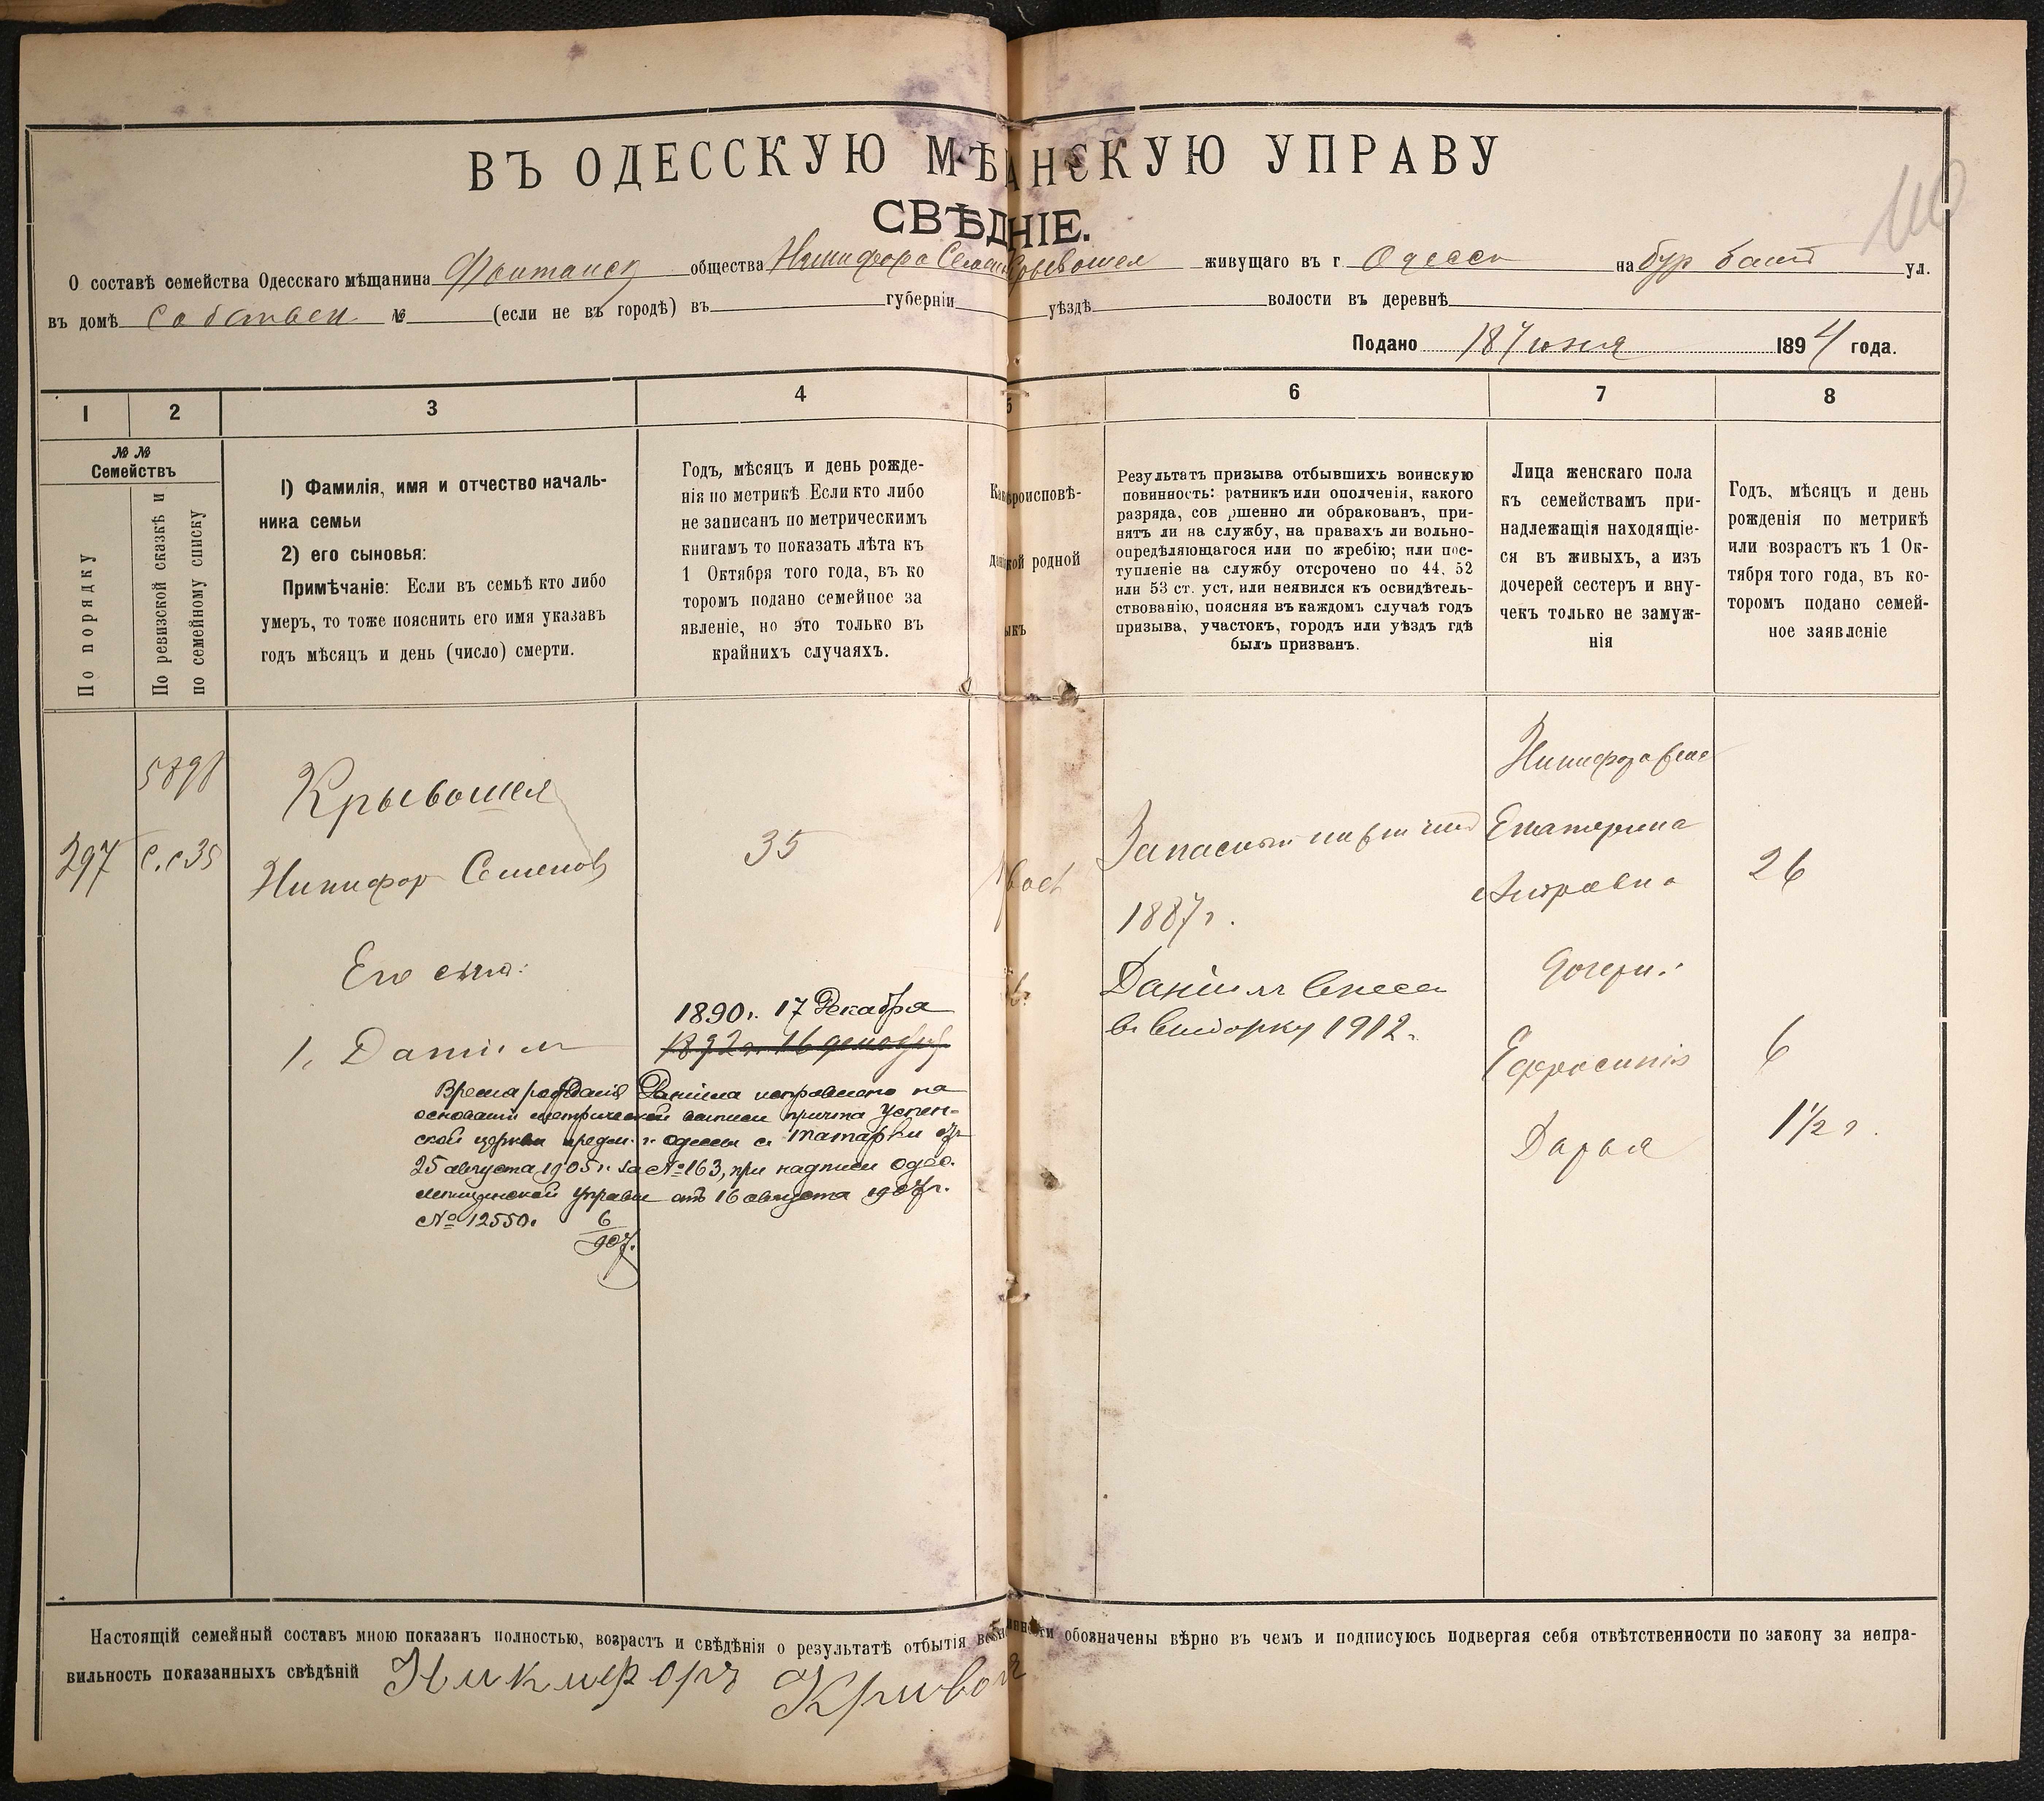 ВЪ ОДЕССКУЮ МѢАНСКУЮ УПРАВУ
СВѢДНІЕ.
О составѣ семейства Одесскаго мѣщанина Фонтанск общества Никифора Семен живущаго въ г. Одессѣ на ул.
въ домѣ собствен № (если не въ городѣ) въ губерніи уѣздѣ волости въ деревнѣ
Подано 18 Июня 1894 года.
1 2 3 4 5 6 7 8
№ № Семействъ
По порядку
По ревизской сказкѣ и по семейному списку
1) Фамилія, имя и отчество началь-
ника семьи
2) его сыновья:
Примѣчаніе: Если въ семьѣ кто либо
умеръ, то тоже пояснить его имя указавъ
годъ мѣсяцъ и день (число) смерти.
Годъ, мѣсяцъ и день рожде-
нія по метрикѣ Если кто либо
не записанъ по метрическимъ
книгамъ то показать лѣта къ
1 Октября того года, въ ко
торомъ подано семейное за
явленіе, но это только въ
крайнихъ случаяхъ.
роисповѣ-
кой родной
Результатъ призыва отбывшихъ воинскую
повинность: ратникъ или ополченія, какого
разряда, сов ршенно ли обракованъ, при-
нятъ ли на службу, на правахъ ли вольно-
опредѣляющагося или по жребію; или пос-
тупленіе на службу отсрочено по 44, 52
или 53 ст. уст, или неявился къ освидѣтель-
ствованію, поясняя въ каждомъ случаѣ годъ
призыва, участокъ, городъ или уѣздъ гдѣ
былъ призванъ.
Лица женскаго пола
къ семействамъ при-
надлежащія находящіе-
ся въ живыхъ, а изъ
дочерей сестеръ и вну-
чекъ только не замуж-
нія
Годъ, мѣсяцъ и день
рожденія по метрикѣ
или возрастъ къ 1 Ок-
тября того года, въ ко-
торомъ подано семей-
ное заявленіе
5898
297 С.с 35
Крывошея
Никифор Семенов
35
Запасный
1887 г.
Никифора жена
Екатерина
26
Его сын:
1. Даниил
1890 г. 17 Декабря
1892 г. 16 декабря
Даніил внесен
в выборку 1912 г.
дочери:
Ефросинія
6
Дарья
1 1/2 г.
Время рождения Даниила исправлено на
основании метрической выписи причта Успен-
ской церкви предм. г. Одессы с. Татарки от
25 августа 1905 г. за № 163, при надписи Одес.
мещанской управы от 16 августа 1907 г.
№ 12550. 6/907.
Настоящій семейный составъ мною показанъ полностью, возрастъ и свѣдѣнія о результатѣ отбытія обозначены вѣрно въ чемъ и подписуюсь подвергая себя отвѣтственности по закону за непра-
вильность показанныхъ свѣдѣній Никифоръ